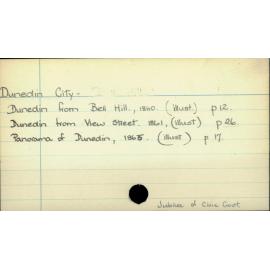 Dunedin City -
Dunedin from Bell Hill, 1860. (illust.) p 12.
Dunedin from View Street. 1861, (illust) p 26.
Panorama of Dunedin, 1865. (illust) p 17.
Jubilee of Civic Govt